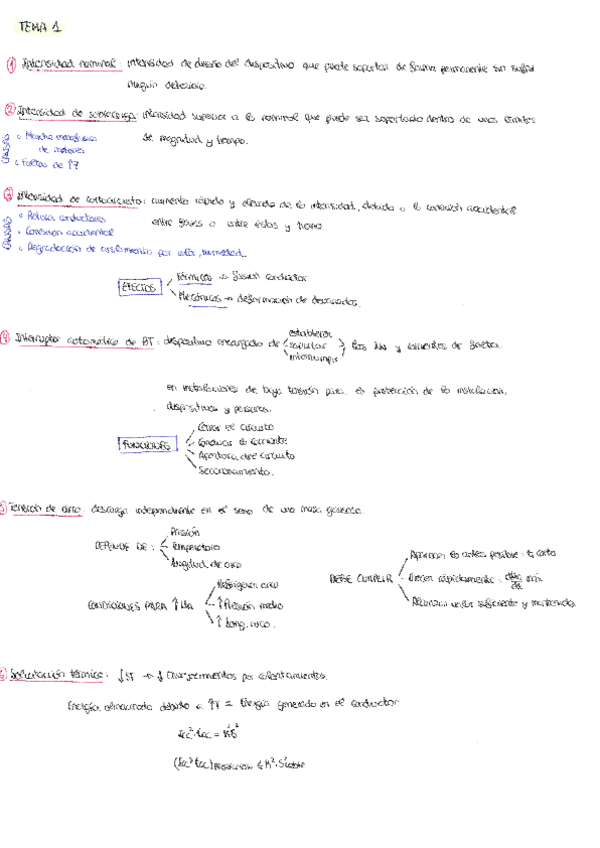 TEMA 1
① Intensidad nominal: intensidad de diseño del dispositivo que puede soportar de forma permanente sin sufrir
ningún deterioro.
② Intensidad de sobrecarga: intensidad superior a la nominal que puede ser soportada dentro de unos límites
de magnitud y tiempo.
CAUSAS
• Marcha monofásica
de motores
• Faltas de
③ Intensidad de cortocircuito: aumento rápido y elevado de la intensidad, debido a la conexión accidental
entre fases o entre éstas y tierra.
CAUSAS
• Rotura conductores
• Conexión accidental
• Degradación de aislamiento por calor, humedad...
EFECTOS
Térmicos → fusión conductor
Mecánicos → deformación de
④ Interruptor automático de BT: dispositivo encargado de
establecer
soportar
interrumpir
las Ins y corrientes de falta
en instalaciones de baja tensión para la protección de la instalación,
dispositivos y personas.
FUNCIONES
Cerrar el circuito
Conducir la corriente
Apertura del circuito
Seccionamiento.
⑤ Tensión de arco: descarga independiente en el seno de una masa gaseosa.
DEPENDE DE:
Presión
Temperatura
Longitud de arco
CONDICIONES PARA ↑Ua
Refrigerar arco
↑ Presión medio
↑ Long. arco.
DEBE CUMPLIR
Aparecer lo antes posible: t corto
Crecer rápidamente: máx.
Alcanzar valor suficiente y mantenerla
⑥ Solicitación térmica: ↓ST → ↓ por calentamientos.
Energía almacenada debido a ↑T = Energía generada en el conductor
Icc²·tcc =
(Icc²·tcc) ≤ K²·S²